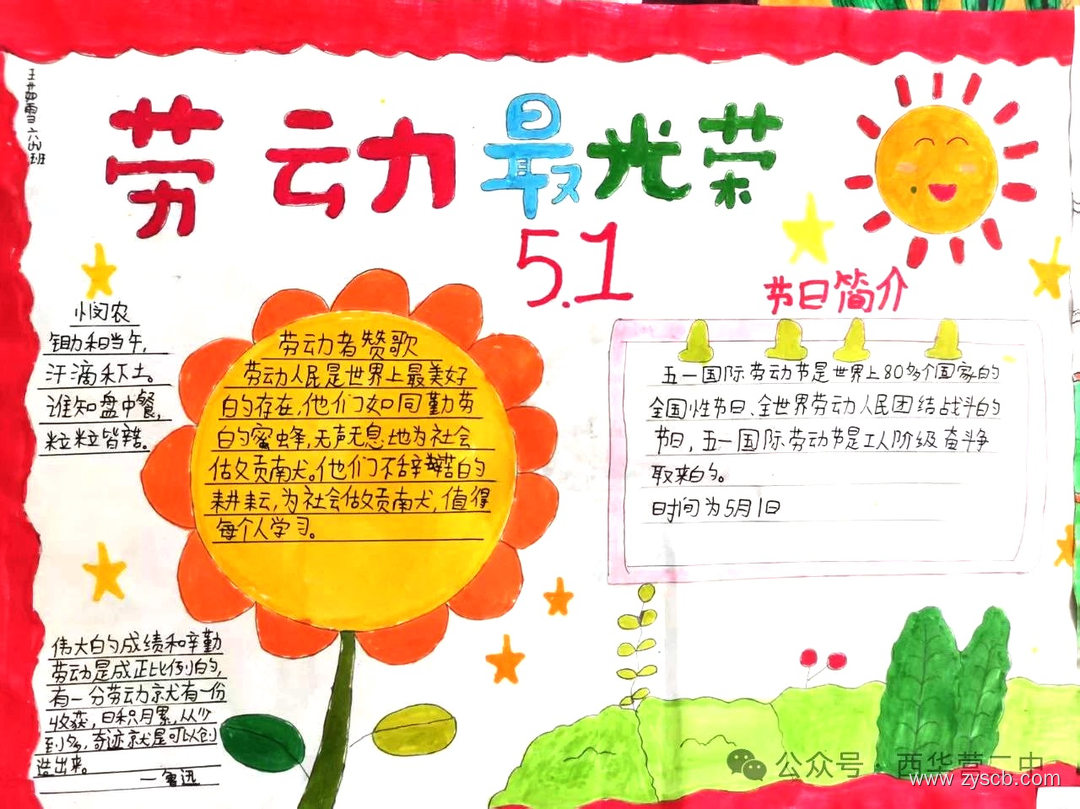 劳动最光荣
5.1
节日简介
悯农
锄禾日当午,
汗滴禾下土。
谁知盘中餐,
粒粒皆
劳动者赞歌
劳动人民是世界上最美好
的存在,他们如同勤劳
的蜜蜂,无声无息地为社会
做贡献。他们不辞辛苦的
耕耘,为社会做贡献,值得
每个人学习。
五一国际劳动节是世界上80多个国家的
全国性节日、全世界劳动人民团结战斗的
节日,五一国际劳动节是工人阶级奋斗争
取来的。
时间为5月1日
伟大的成绩和辛勤
劳动是成正比例的,
有一分劳动就有一份
收获,日积月累,从少
到多,奇迹就是可以创
造出来。
一鲁迅
公众号·西华营二中
www.zyscb.com